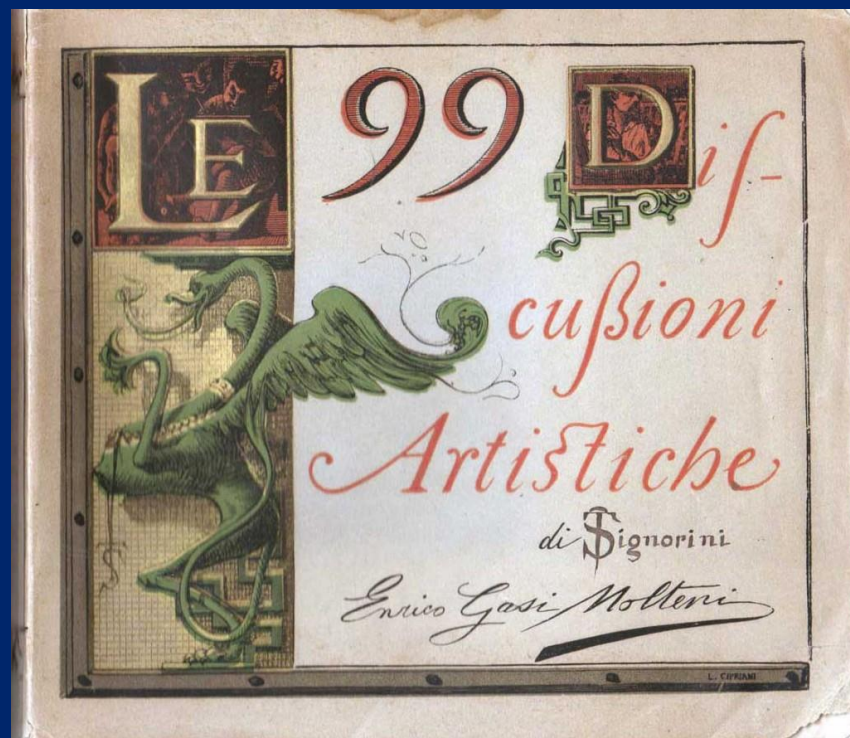 LE 99 Diſ-
cußioni
Artistiche
di TSignorini
Enrico Gasi Molteni
TS
L. CIPRIANI